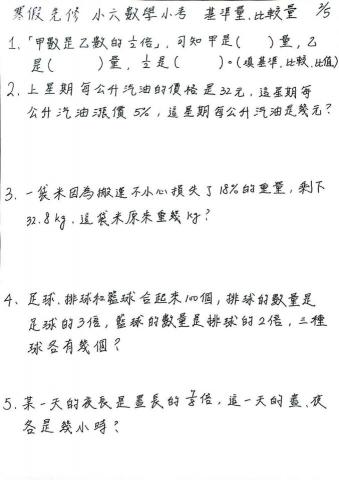 寒假先修 小六數學小考 基準量.比較量 2/5
1.「甲數是乙數的1/2倍」,可知甲是( )量,乙
是( )量,1/2是( )。(填基準.比較.比值)
2.上星期每公升汽油的價格是32元,這星期每
公升汽油漲價5%,這星期每公升汽油是幾元?
3.一袋米因為搬運不小心損失了18%的重量,剩下
32.8kg.這袋米原來重幾kg?
4.足球.排球和籃球合起來100個,排球的數量是
足球的3倍,籃球的數量是排球的2倍,三種
球各有幾個?
5.某一天的夜長是晝長的7/8倍,這一天的晝.夜
各是幾小時?